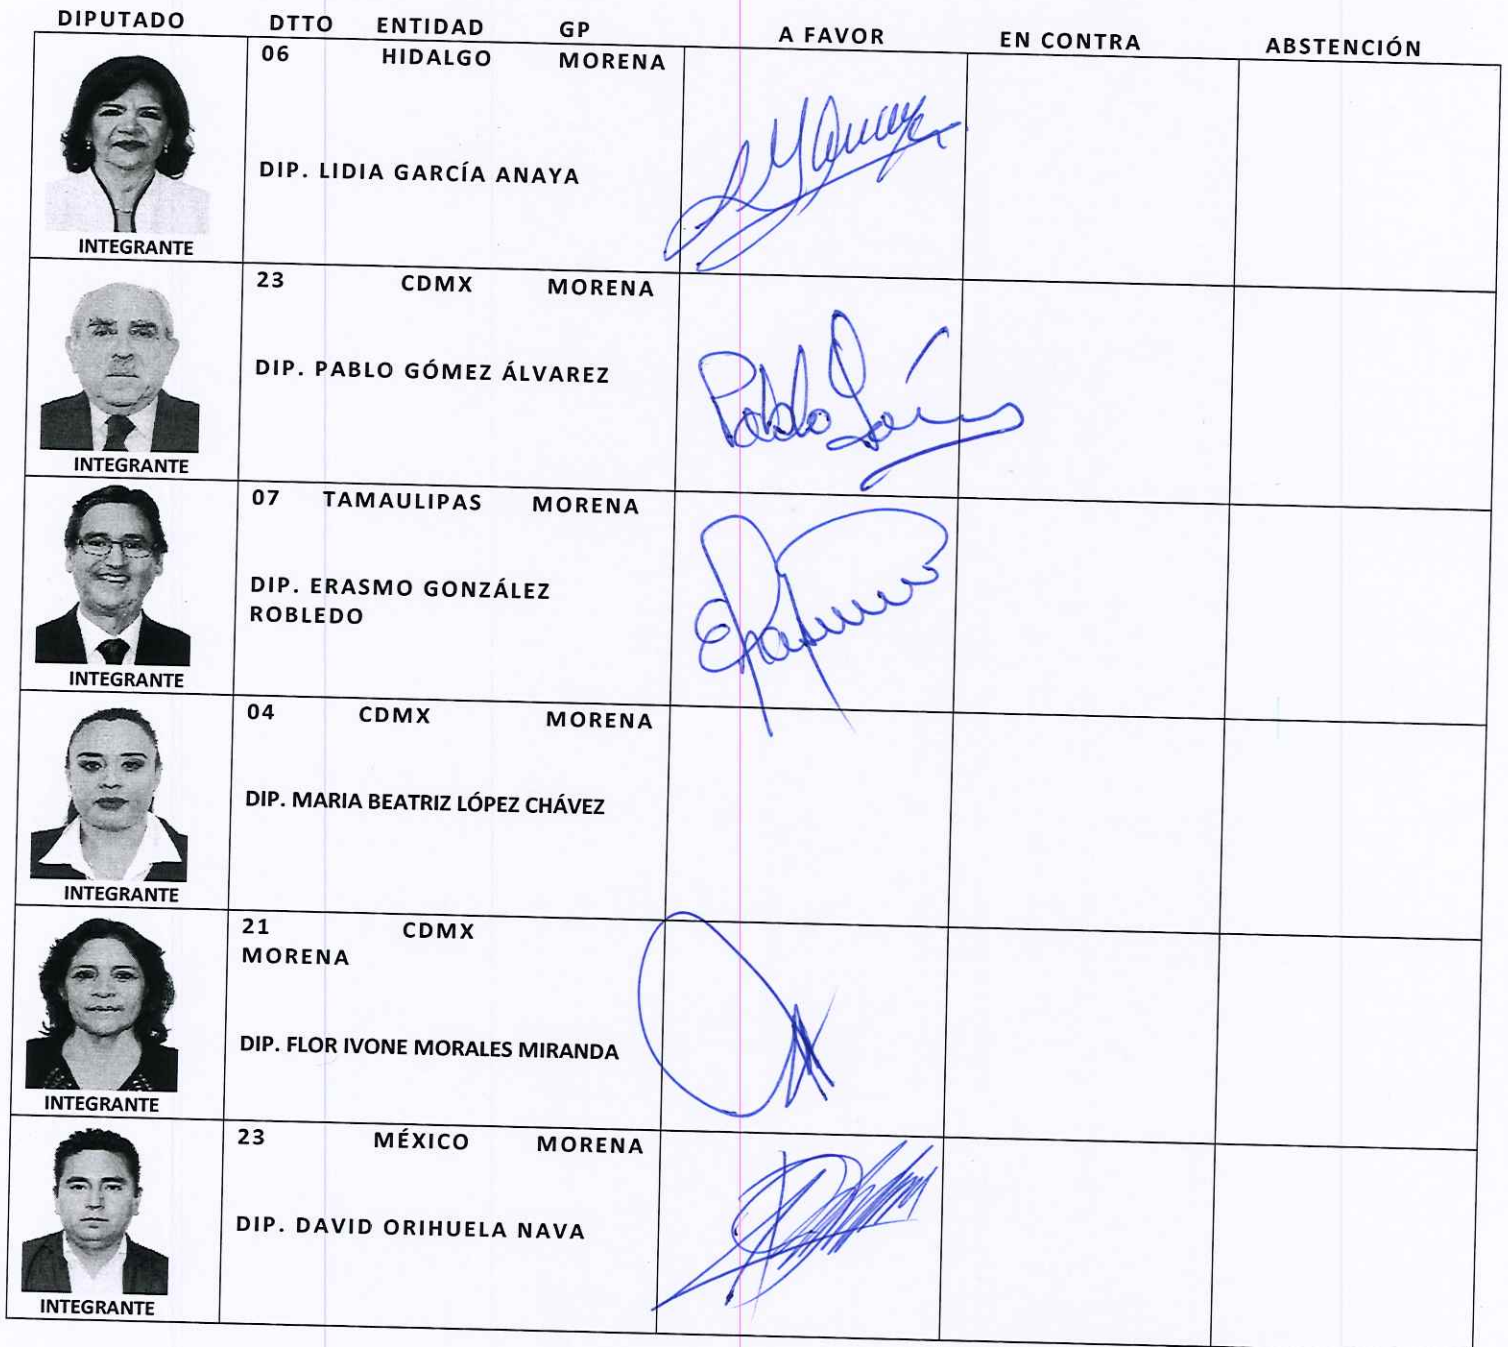 DIPUTADO DTTO ENTIDAD GP A FAVOR EN CONTRA ABSTENCIÓN
06 HIDALGO MORENA
DIP. LIDIA GARCÍA ANAYA
INTEGRANTE
23 CDMX MORENA
DIP. PABLO GÓMEZ ÁLVAREZ
Pablo
INTEGRANTE
07 TAMAULIPAS MORENA
DIP. ERASMO GONZÁLEZ
ROBLEDO
INTEGRANTE
04 CDMX MORENA
DIP. MARIA BEATRIZ LÓPEZ CHÁVEZ
INTEGRANTE
21 CDMX
MORENA
DIP. FLOR IVONE MORALES MIRANDA
INTEGRANTE
23 MÉXICO MORENA
DIP. DAVID ORIHUELA NAVA
INTEGRANTE